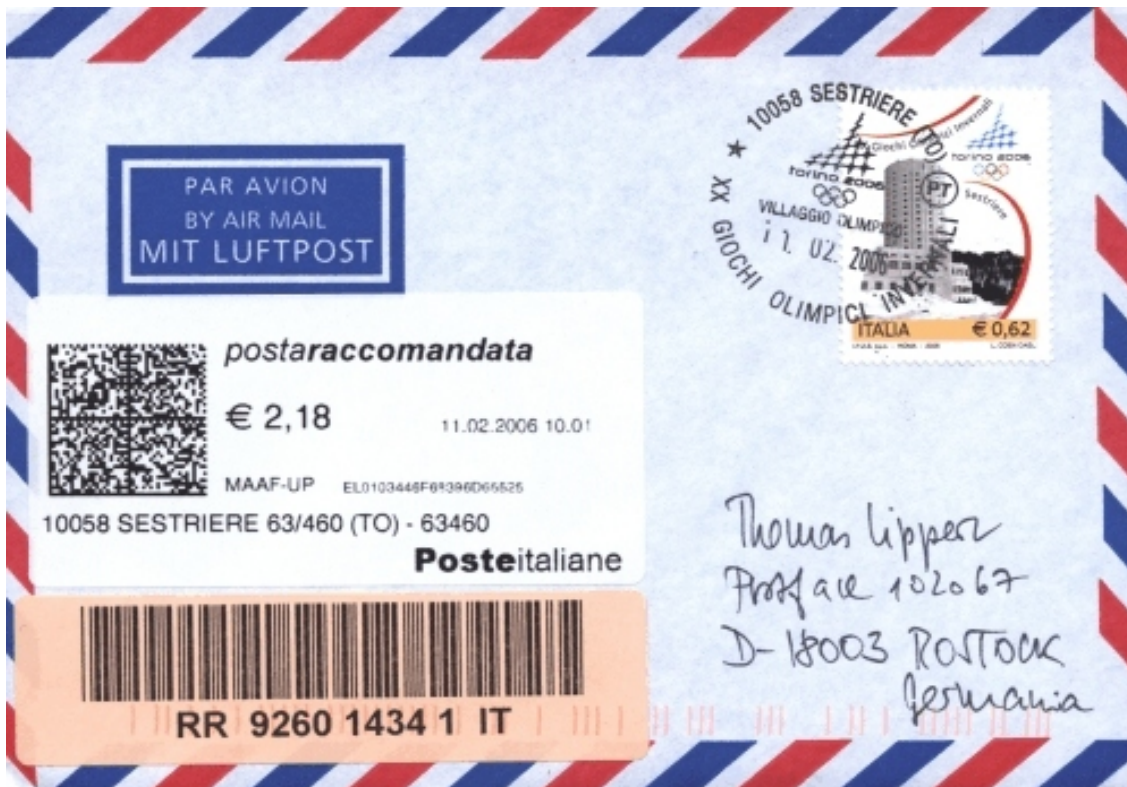 PAR AVION
BY AIR MAIL
MIT LUFTPOST
10058 SESTRIERE (TO)
XX GIOCHI OLIMPICI INVERNALI
torino 2006
VILLAGGIO OLIMPICO
11. 02. 2006
Giochi Olimpici Invernali
torino 2006
PT
Sestriere
ITALIA € 0,62
postaraccomandata
€ 2,18 11.02.2006 10.01
MAAF-UP
10058 SESTRIERE 63/460 (TO) - 63460
Posteitaliane
RR 9260 1434 1 IT
Thomas Lippert
Postfach 102067
D-18003 ROSTOCK
Germania